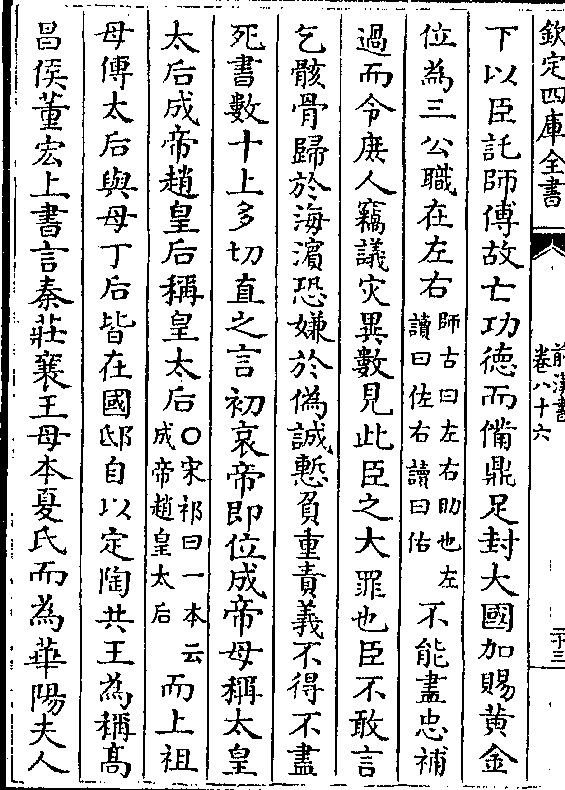 欽定四庫全書
前漢書
卷八十六
二十三
下以臣託師傅故亡功德而備鼎足封大國加賜黄金
位為三公職在左右師古曰左右助也左讀曰佐右讀曰佑不能盡忠補
過而令庶人竊議灾異數見此臣之大罪也臣不敢言
乞骸骨歸於海濵恐嫌於偽誠慙負重責義不得不盡
死書數十上多切直之言初哀帝即位成帝母稱太皇
太后成帝趙皇后稱皇太后○宋祁曰一本云成帝趙皇太后而上祖
母傅太后與母丁后皆在國邸自以定陶共王為稱髙
昌侯董宏上書言秦莊襄王母本夏氏而為華陽夫人